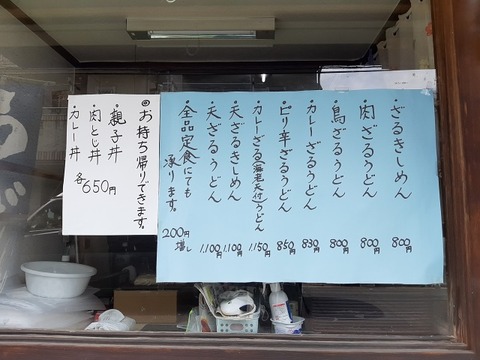 ・ざるきしめん 800円
・肉ざるうどん 800円
・鳥ざるうどん 800円
カレーざるうどん 830円
・ピリ辛ざるうどん 850円
・カレーざる(海老天付)うどん 1,150円
・天ざるきしめん 1,100円
・天ざるうどん 1,100円
・全品定食にても承ります。 200円増し
◎お持ち帰りできます。
・親子丼
・肉とじ丼
・カレー丼
各650円